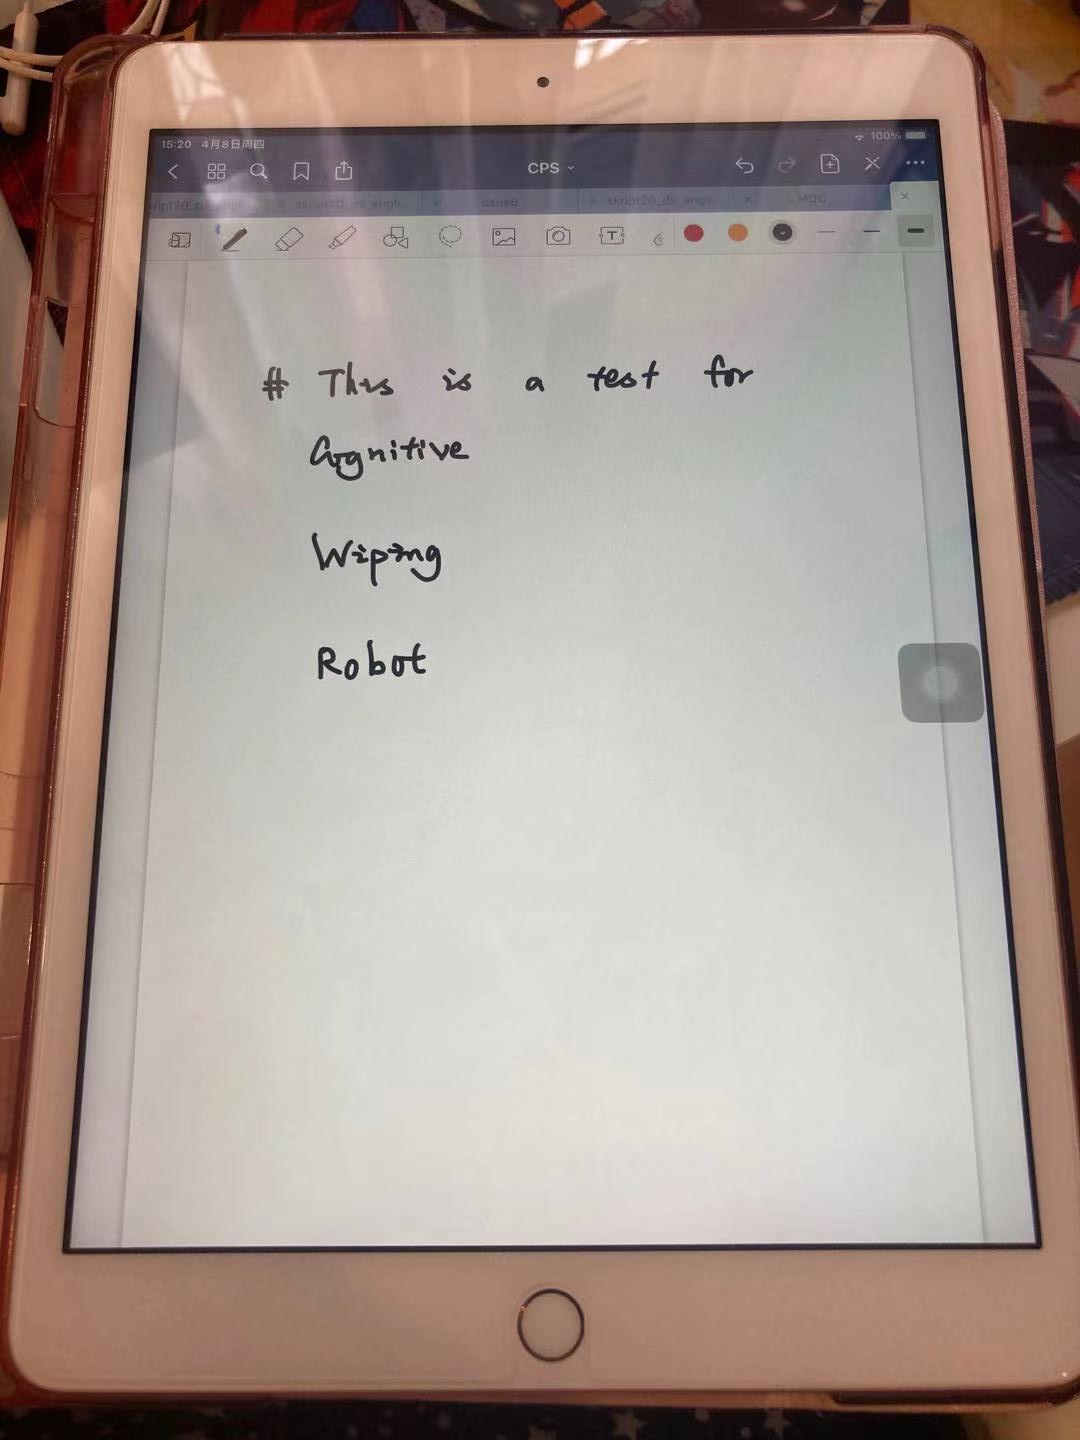 15:20 4月8日周四
100%
CPS
skript20_ds_engli...
daue6
skript20_ds_engli...
MDO
T
# This is a test for
Cognitive
Wiping
Robot